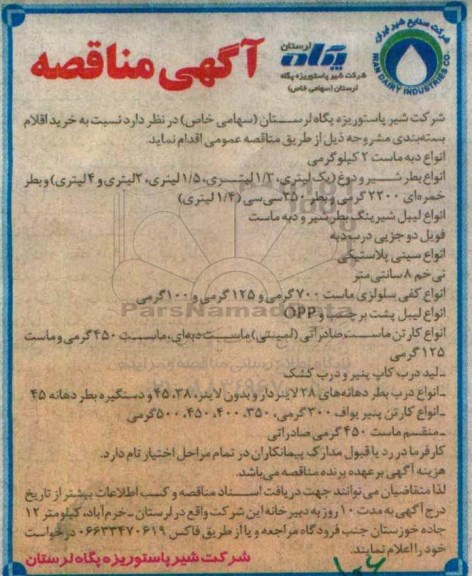 شرکت صنایع شیر ایران
IRAN DAIRY INDUSTRIES CO.
لرستان
پگاه
شرکت شیر پاستوریزه پگاه
لرستان (سهامی خاص)
آگهی مناقصه
شرکت شیر پاستوریزه پگاه لرستان (سهامی خاص) در نظر دارد نسبت به خرید اقلام
بسته‌بندی مشروحه ذیل از طریق مناقصه عمومی اقدام نماید.
انواع دبه ماست ۲ کیلوگرمی
انواع بطر شیر و دوغ (یک لیتری، ۱/۲ لیتری، ۱/۵ لیتری، ۲ لیتری و ۴ لیتری) و بطر
خمره‌ای ۲۲۰۰ گرمی و بطر ۲۵۰ سی سی (۱/۴ لیتری)
انواع لیبل شیرینگ بطر شیر و دبه ماست
فویل دو جزیی درب دبه
انواع سینی پلاستیکی
نی خم ۸ سانتی متر
انواع کفی سلولزی ماست ۷۰۰ گرمی و ۱۲۵ گرمی و ۱۰۰ گرمی
انواع لیبل پشت برچسب و OPP
ParsNamadData
انواع کارتن ماست صادراتی (لمینتی) ماست دبه‌ای، ماست ۴۵۰ گرمی و ماست
۱۲۵ گرمی
-لید درب کاپ پنیر و درب کشک
-انواع درب بطر دهانه‌های ۲۸ لاینردار و بدون لاینر، ۳۸، ۴۵ و دستگیره بطر دهانه ۴۵
-انواع کارتن پنیر یواف ۳۰۰ گرمی، ۳۵۰، ۴۰۰، ۴۵۰، ۵۰۰ گرمی
-منقسم ماست ۴۵۰ گرمی صادراتی
کارفرما در رد یا قبول مدارک پیمانکاران در تمام مراحل اختیار تام دارد.
هزینه آگهی بر عهده برنده مناقصه می‌باشد.
لذا متقاضیان می‌توانند جهت دریافت اسناد مناقصه و کسب اطلاعات بیشتر از تاریخ
درج آگهی به مدت ۱۰ روز به دبیرخانه این شرکت واقع در لرستان -خرم‌آباد، کیلومتر ۱۲
جاده خوزستان جنب فرودگاه مراجعه و یا از طریق فاکس ۰۶۶۳۳۴۷۰۶۱۹ درخواست
خود را اعلام نمایند.
شرکت شیر پاستوریزه پگاه لرستان